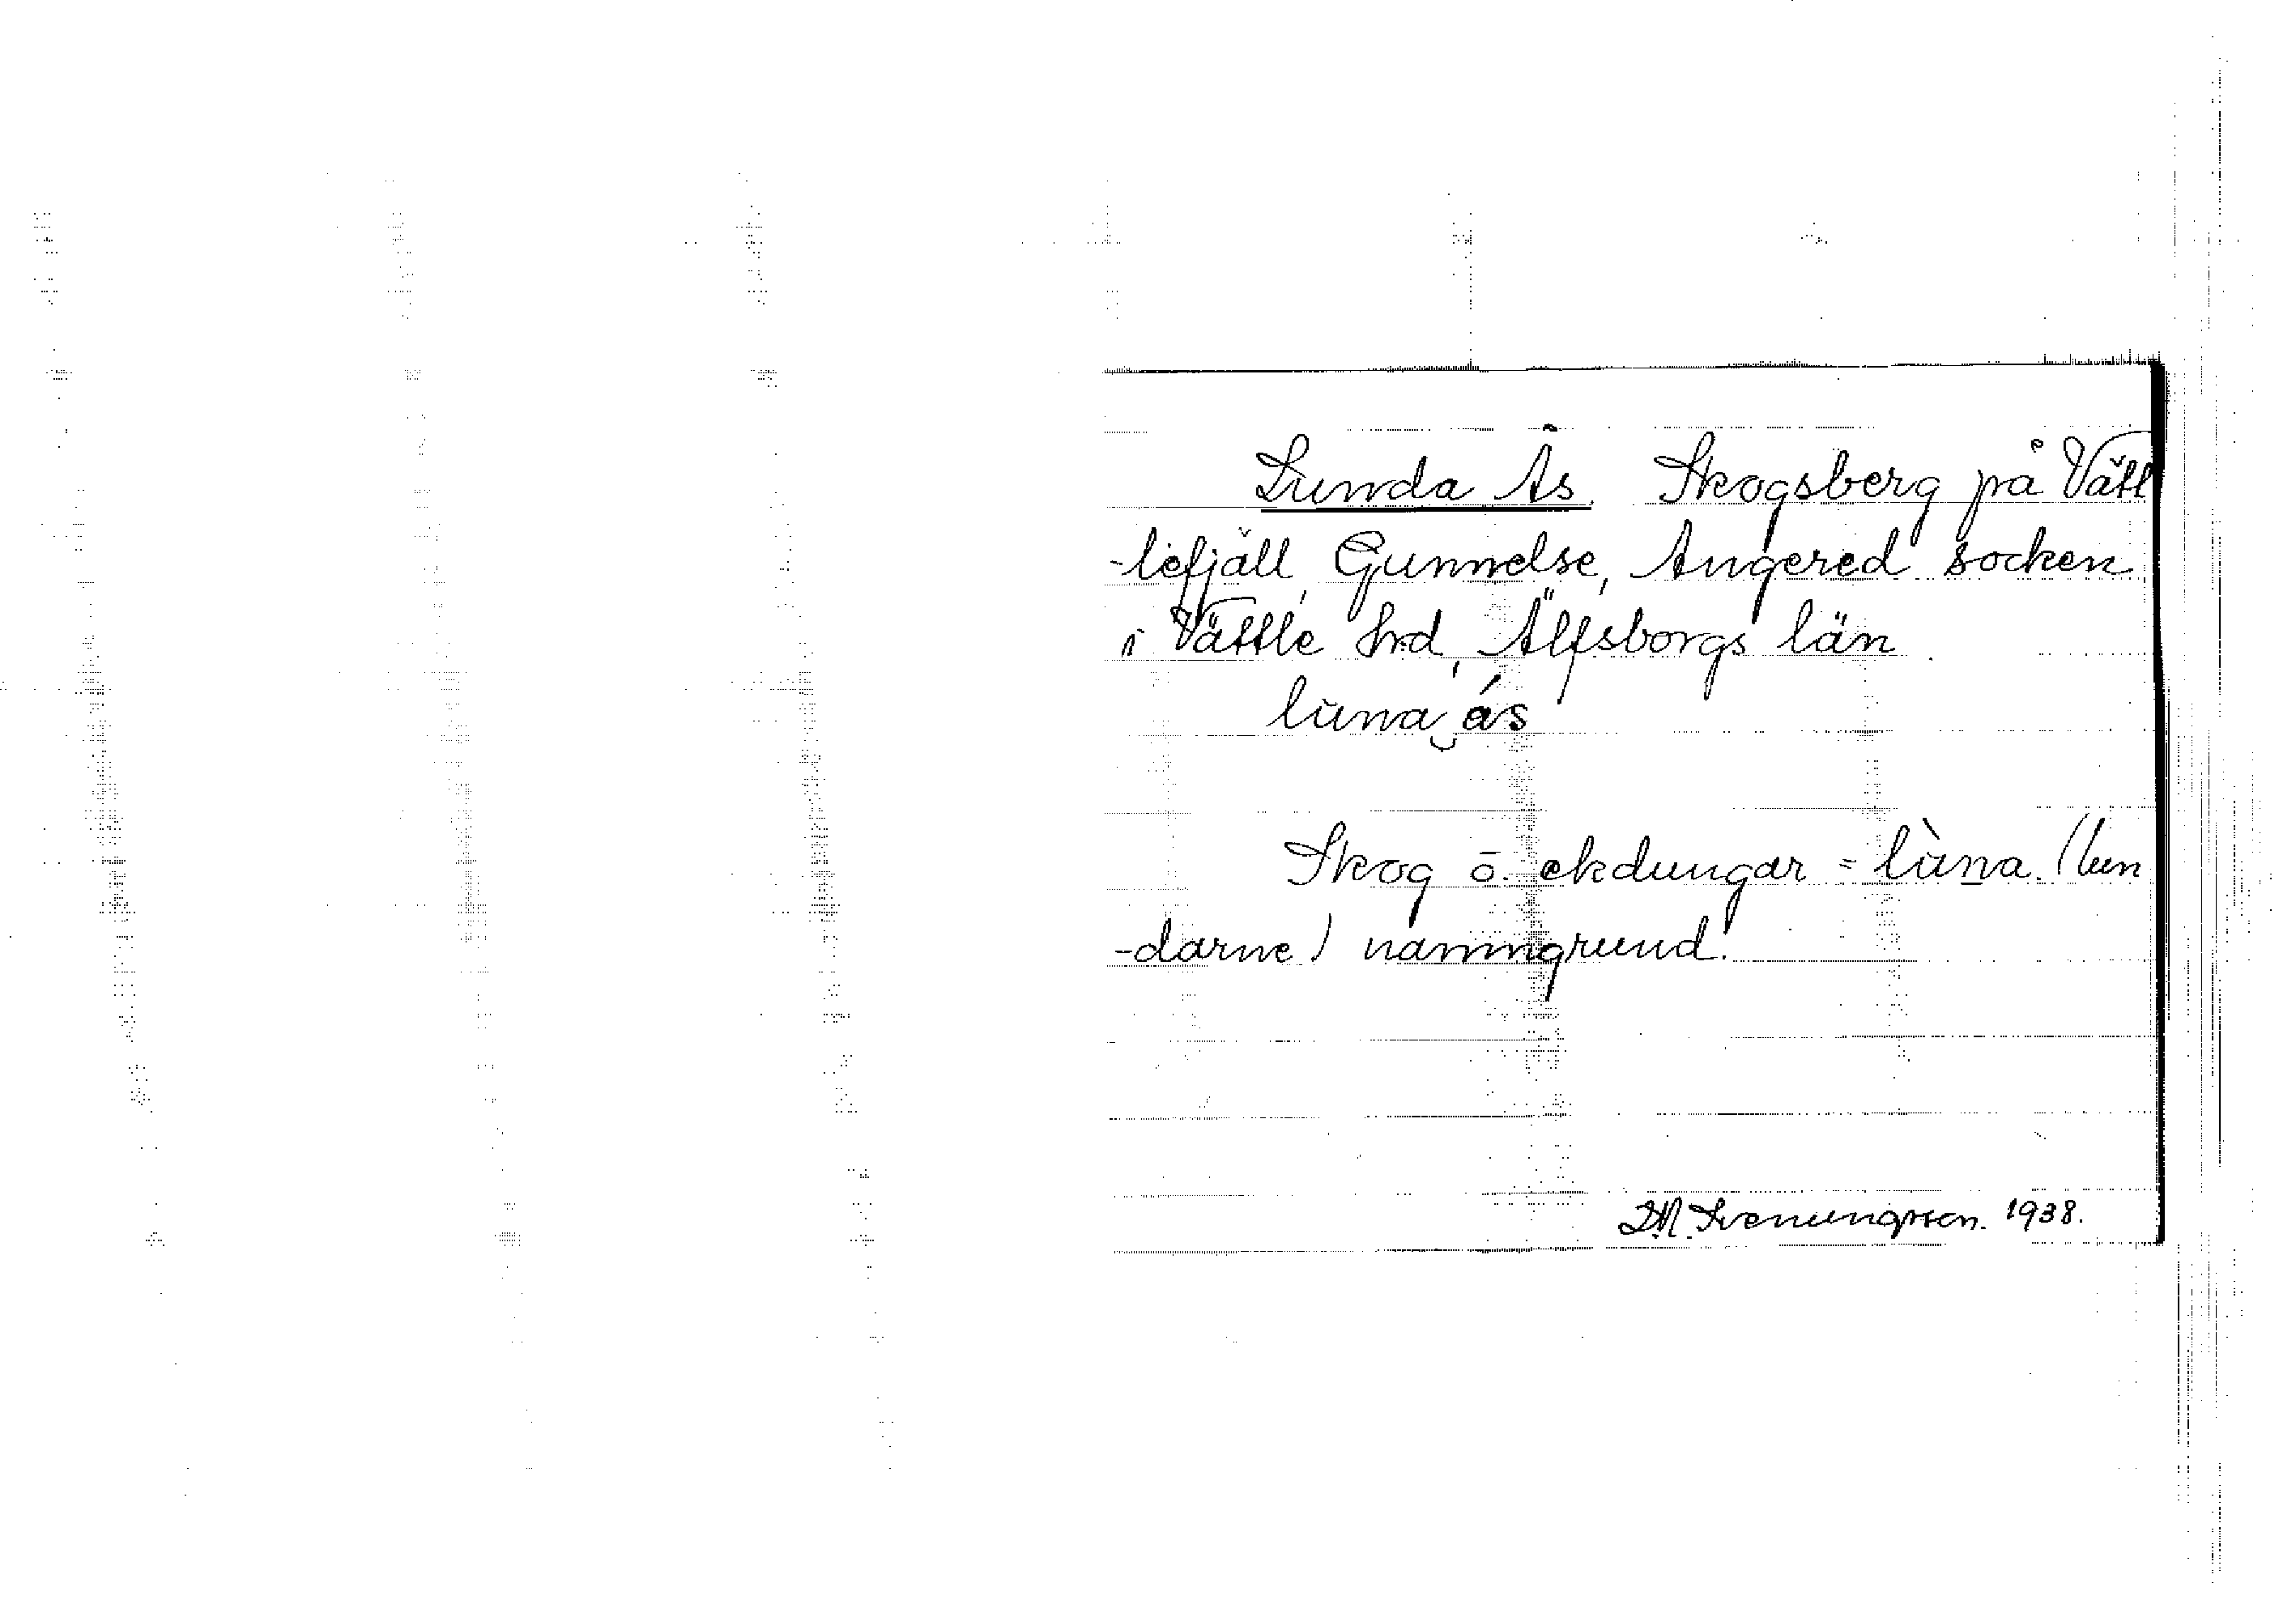 Lunda Ås. Skogsberg på Vätt
-lefjäll, Gunnelse, Angered socken
i Vättle hrd, Älfsborgs län
lùna‿ás
Skog o. ekdungar = lùna. (lun
-darne) namngrund.
D.N. Svenungsson. 1938.